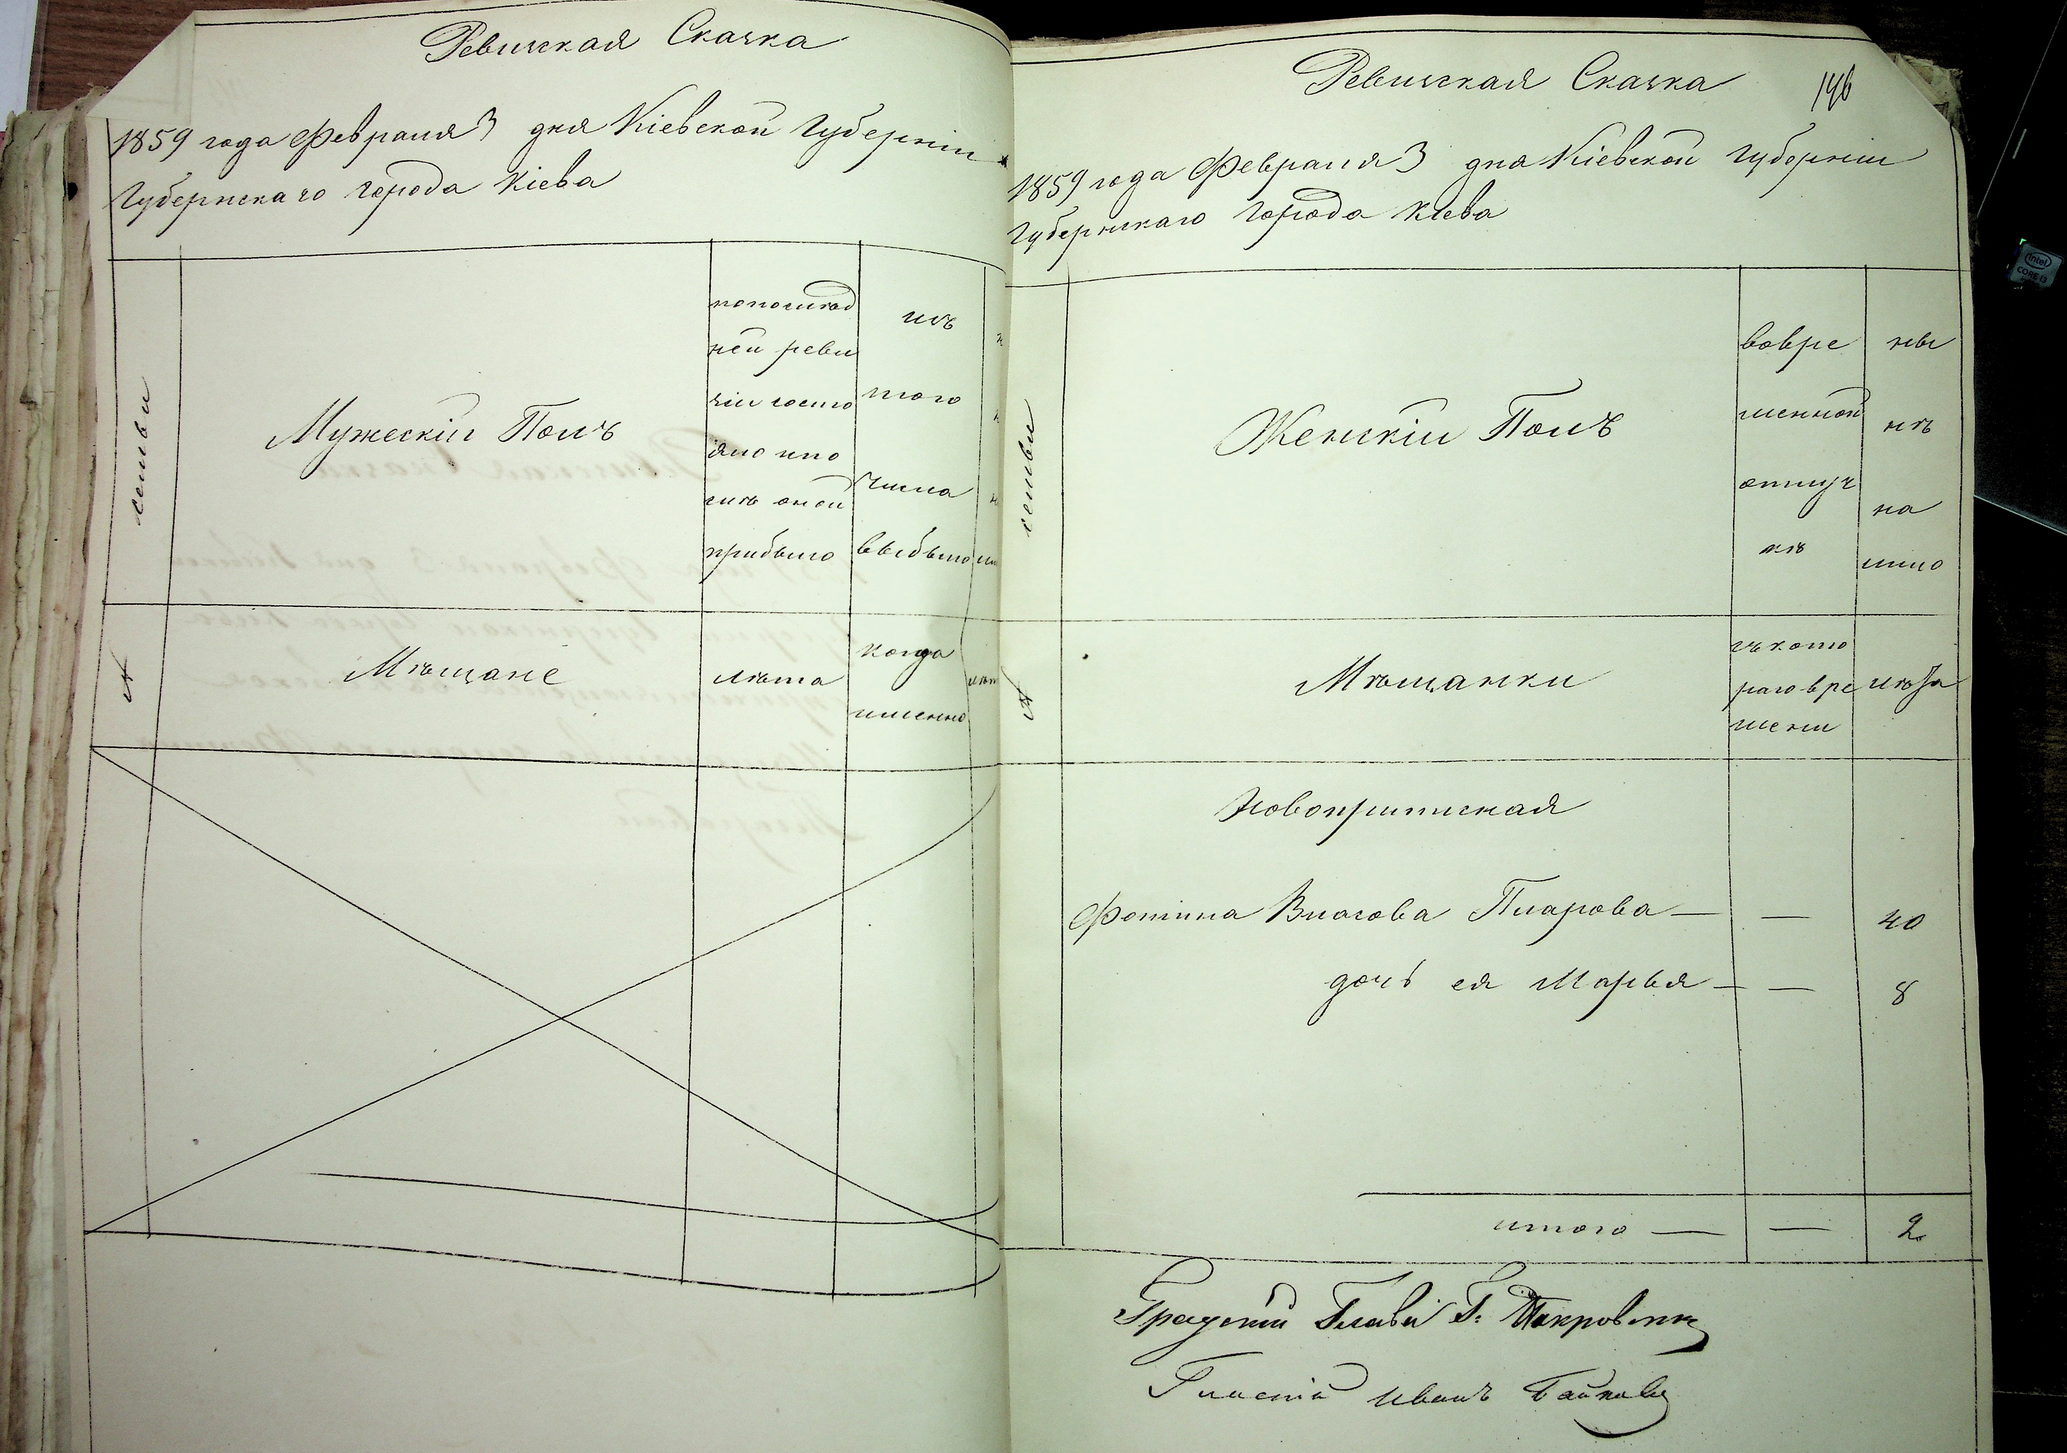 Ревизская Сказка
1859 года Февраля 3 дня Кіевской Губерніи
Губернскаго города Кіева
семьи
Мужескій Полъ
попослѣд
ней реви
зіи состо
яло ипо
слѣ оной
прибыло
изъ
того
числа
выбыло
№
Мѣщане
лѣта
когда
именно
Ревизская Сказка
146
1859 года Февраля 3 дня Кіевской Губерніи
Губернскаго Города Кіева
семьи
Женскій Полъ
вовре
менной
отлуч
кѣ
ны
нѣ
на
лицо
№
Мѣщанки
съкото
раго вре
мени
лѣта
Новоприписная
Фотина Власова Пиарова — — 40
дочь ея Марья — — 8
итого — — 2
Градскій Глава Г: Покровскій
Гласный Иванъ Байковъ
intel
CORE i3